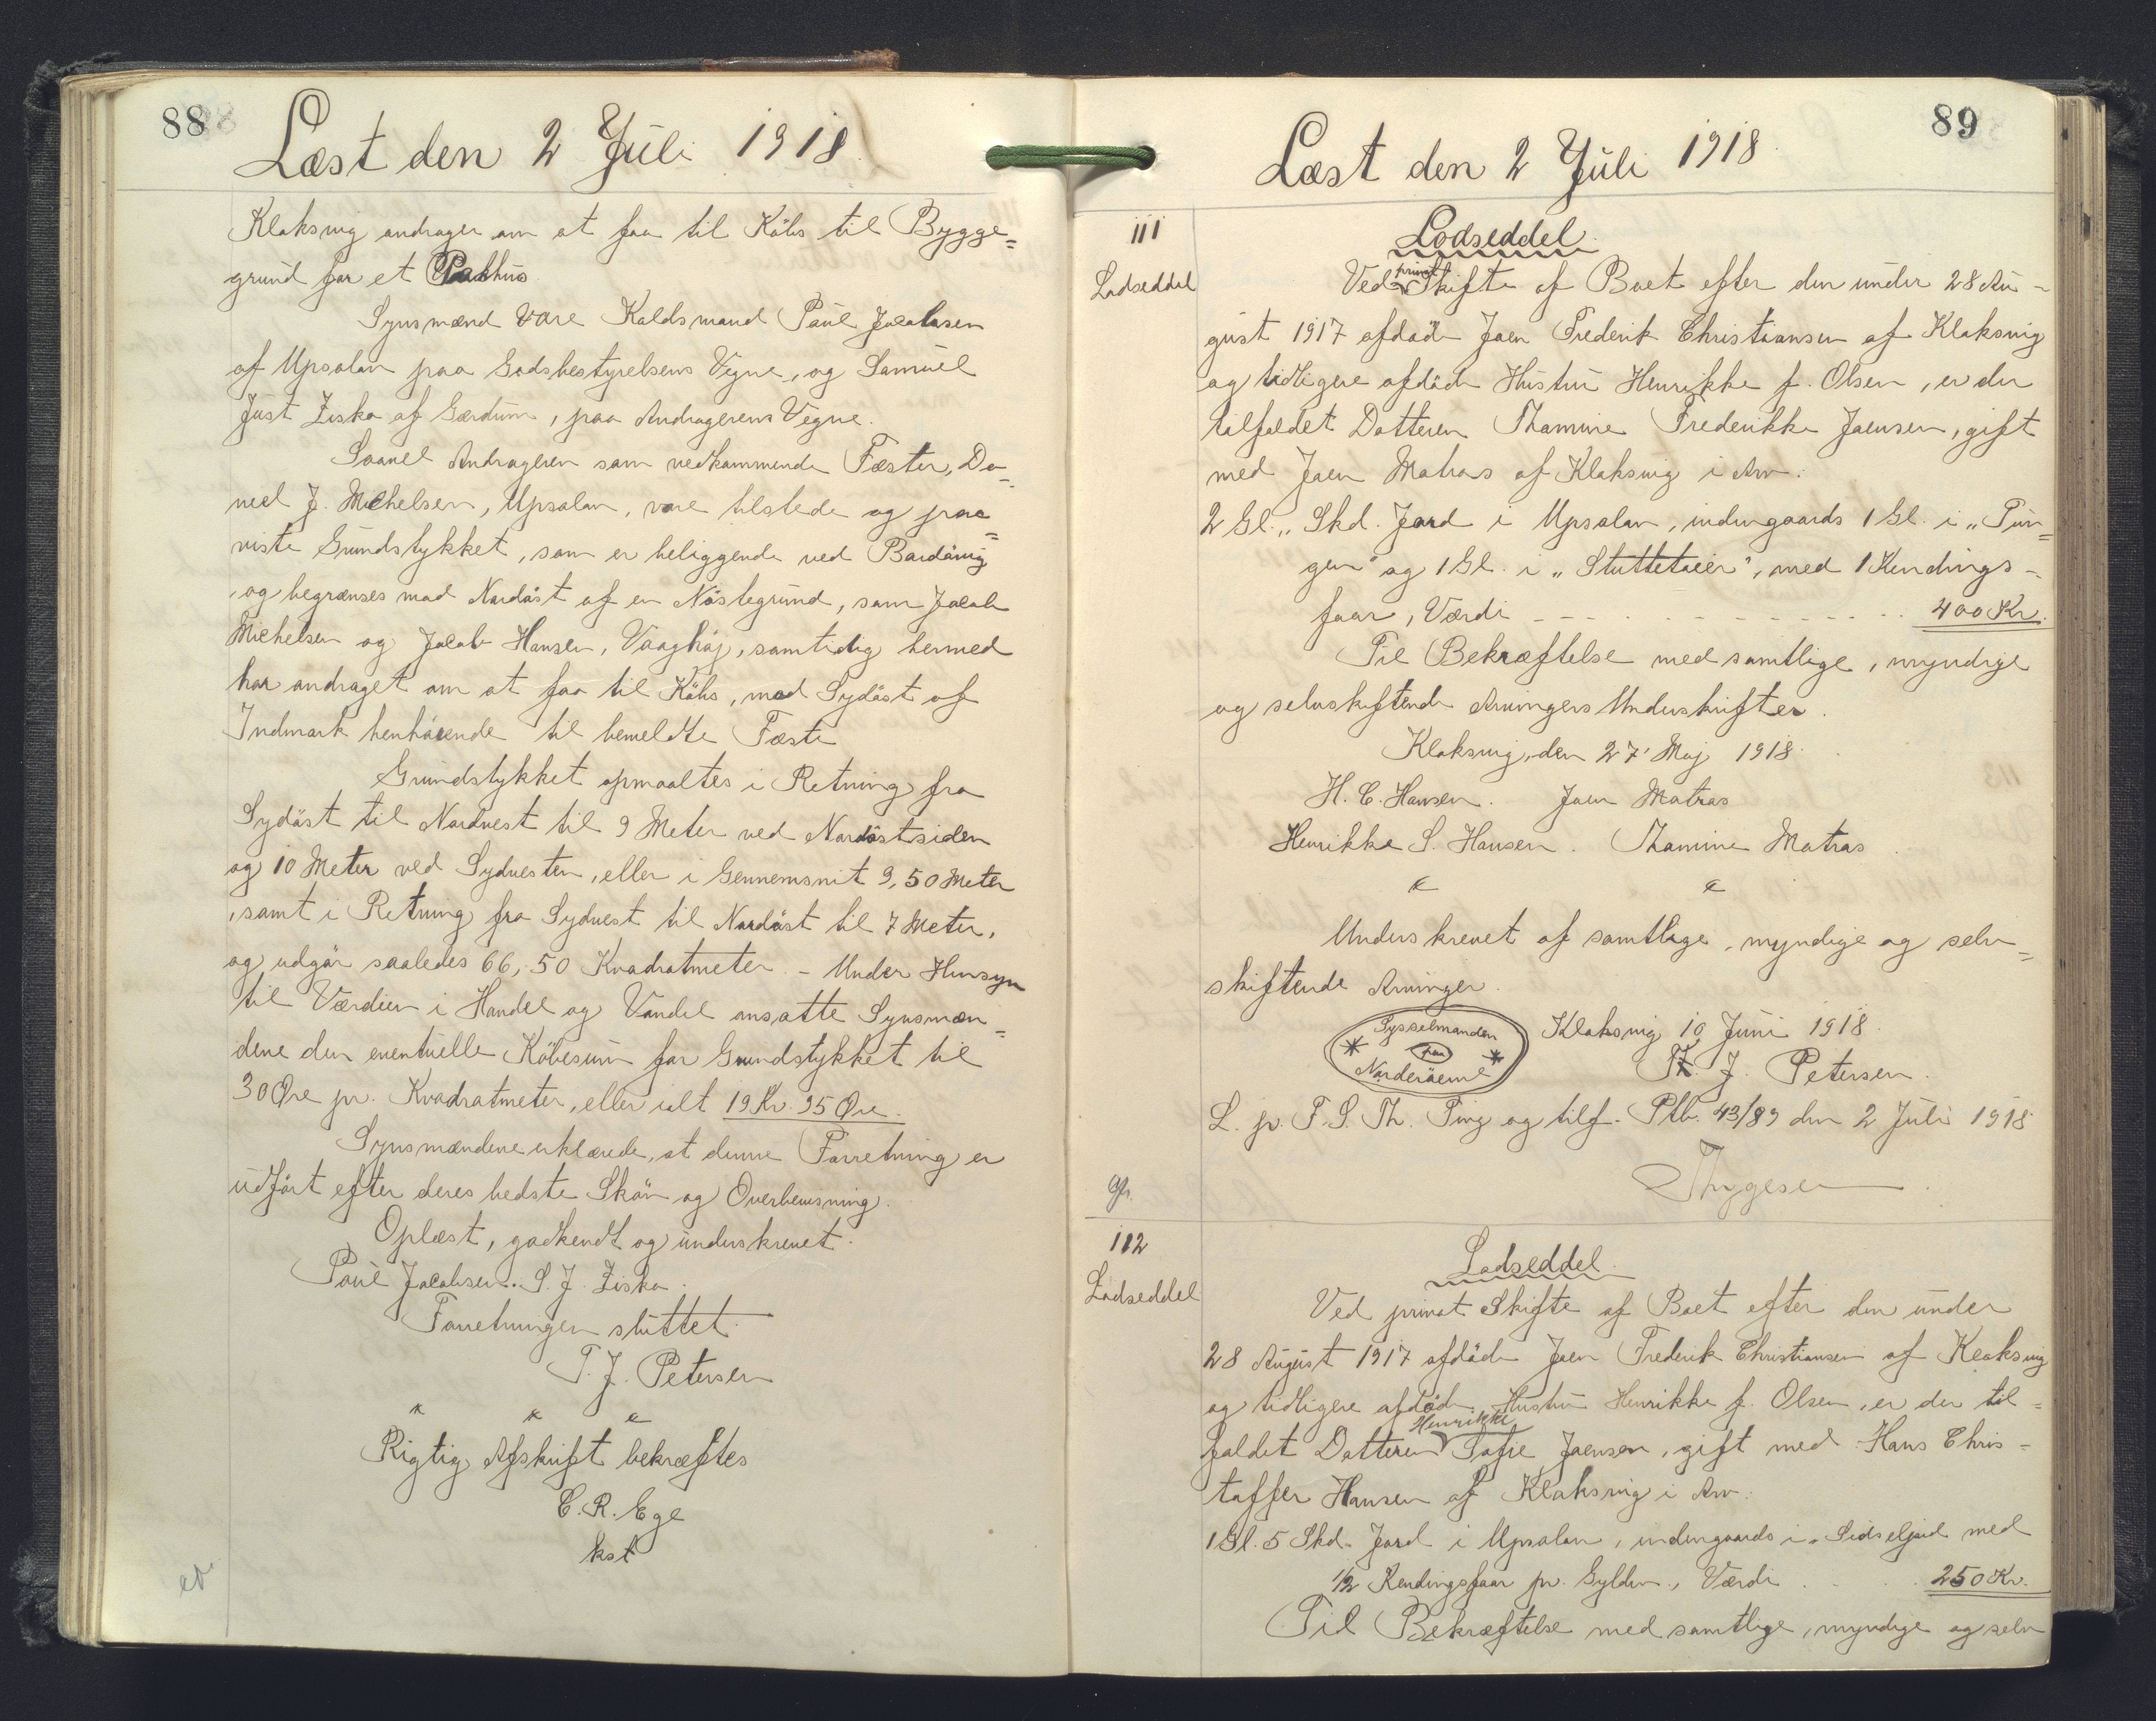 88
Læst den 2 Juli 1918
Klaksvig andrager om at faa til Købs til Bygge=
grund for et Pakhus.
Synsmænd vare Kaldsmand Paul Jacobsen
af Upsalar paa Godsbestyrelsens Vegne, og Samuel
Just Ziska af Gærdum, paa Andragerens Vegne.
Saavel Andrageren som vedkommende Fæster, Da-
niel J. Michelsen, Upsalar, vare tilstede og paa=
viste Grundstykket, som er beliggende ved Bardåvig
, og begrænses mod Nordøst af en Nøstegrund, som Jacob
Michelsen og Jacob Hansen, Vaaghøj, samtidig hermed
har andraget om at faa til Købs, mod Sydøst af
Indmark henhørende til bemeldte Fæste
Grundstykket opmaaltes i Retning fra
Sydøst til Nordvest til 9 Meter ved Nordøstsiden
og 10 Meter ved Sydvesten, eller i Gennemsnit 9,50 Meter
, samt i Retning fra Sydvest til Nordøst til 7 Meter,
og udgør saaledes 66,50 Kvadratmeter. - Under Hensyn
til Værdien i Handel og Vandel ansatte Synsmæn=
dene den eventuelle Købesum for Grundstykket til
30 Øre pr. Kvadratmeter, eller ialt 19 Kr. 95 Øre.
Synsmændene erklærede, at denne Forretning er
udført efter deres bedste Skøn og Overbevisning.
Oplæst, godkendt og underskrevet.
Paul Jacobsen.. S. J. Ziska.
Forretningen sluttet.
T. J. Petersen
Rigtig Afskrift bekræftes
C. R. Ege
kst
89
Læst den 2 Juli 1918.
111
Lodseddel
Lodseddel.
Ved privat Skifte af Boet efter den under 28 Au-
gust 1917 afdøde Joen Frederik Christiansen af Klaksvig
og tidligere afdøde Hustru Henrikke f. Olsen, er der
tilfaldet Datteren Thamine Frederikke Joensen, gift
med Joen Matras af Klaksvig i Arv:
2 Gl. „ Skd. Jord i Upsalar, indengaards 1 Gl. i „Tun=
gen" og 1 Gl. i „Stutteteier", med 1 Kendings-
faar, Værdi 400 Kr.
Til Bekræftelse med samtlige, myndige
og selvskiftende Arvingers Underskrifter.
Klaksvig, den 27' Maj 1918.
H. C. Hansen. Joen Matras
Henrikke S. Hansen. Thamine Matras.
Underskrevet af samtlige, myndige og selv=
skiftende Arvinger.
Sysselmanden
paa
Norderøerne
Klaksvig 10 Juni 1918.
T. J. Petersen.
L. p. F. S. Th. Ting og tilf. Ptb. 43/89 den 2 Juli 1918
Thygesen
112
Lodseddel
Lodseddel.
Ved privat Skifte af Boet efter den under
28 August 1917 afdøde Joen Frederik Christiansen af Klaksvig
og tidligere afdøde Hustru Henrikke f. Olsen, er der til=
faldet Datteren Henrikke Sofie Joensen, gift med Hans Chris=
toffer Hansen af Klaksvig i Arv:
1 Gl. 5 Skd. Jord i Upsalar, indengaards i „Sidseljord med
1/2 Kendingsfaar pr. Gylden., Værdi 250 Kr.
Til Bekræftelse med samtlige, myndige og selv